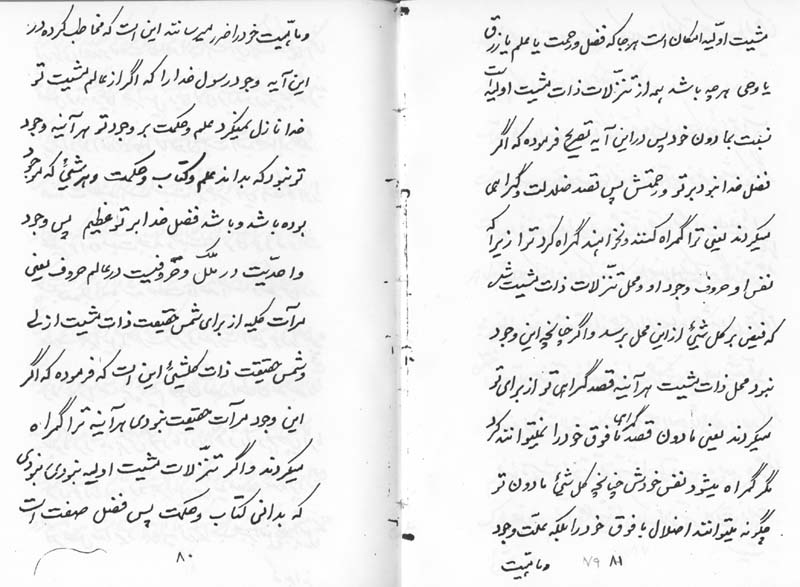 مشیت اولیه امکان است هر جا که فضل و رحمت یا علم یا رزق
یا وحی هر چه باشد همه از تنزلات ذات مشیت اولیه است
نسبت بما دون خود پس در این آیه تصریح فرموده که اگر
فضل خدا نبود بر تو و رحمتش پس قصد ضلالت و گمراهی
میکردند یعنی ترا گمراه کنند و نخواهند گمراه کرد ترا زیرا که
نفس او حروف وجود او و محل تنزلات ذات مشیت
که فیض بر کل شیئ از این محل برسد و اگر چنانچه این وجود
نبود محل ذات مشیت هر آینه قصد گمراهی تو از برای تو
میکردند یعنی مادون قصد گمراهی مافوق خود را نمیتوانند کرد
مگر گمراه میشود نفس خودش چنانچه کل شیئ مادون تو
چگونه میتوانند اضلال مافوق خود را بلکه علت وجود
و ماهیت
۷۹ ۸۱
و ماهیت خود را ضرر میرسانند این است که مخاطب کرده در
این آیه وجود رسول خدا را که اگر از عالم مشیت تو
خدا نازل نمیکرد علم و حکمت بر وجود تو هر آینه وجود
تو نبود که بداند علم و کتاب و حکمت و هر شیئ که موجود
بوده باشد و باشد فضل خدا بر تو عظیم پس وجود
واحدیت در ملک و حروفیت در عالم حروف یعنی
مرآت کلیه از برای شمس حقیقت ذات مشیت ازلی
و شمس حقیقت ذات کلشیئ این است که فرموده که اگر
این وجود مرآت حقیقت نبودی هر آینه ترا گمراه
میکردند و اگر تنزلات مشیت اولیه نبودی نبودی
که بدانی کتاب و حکمت پس فضل صفت است
۸۰